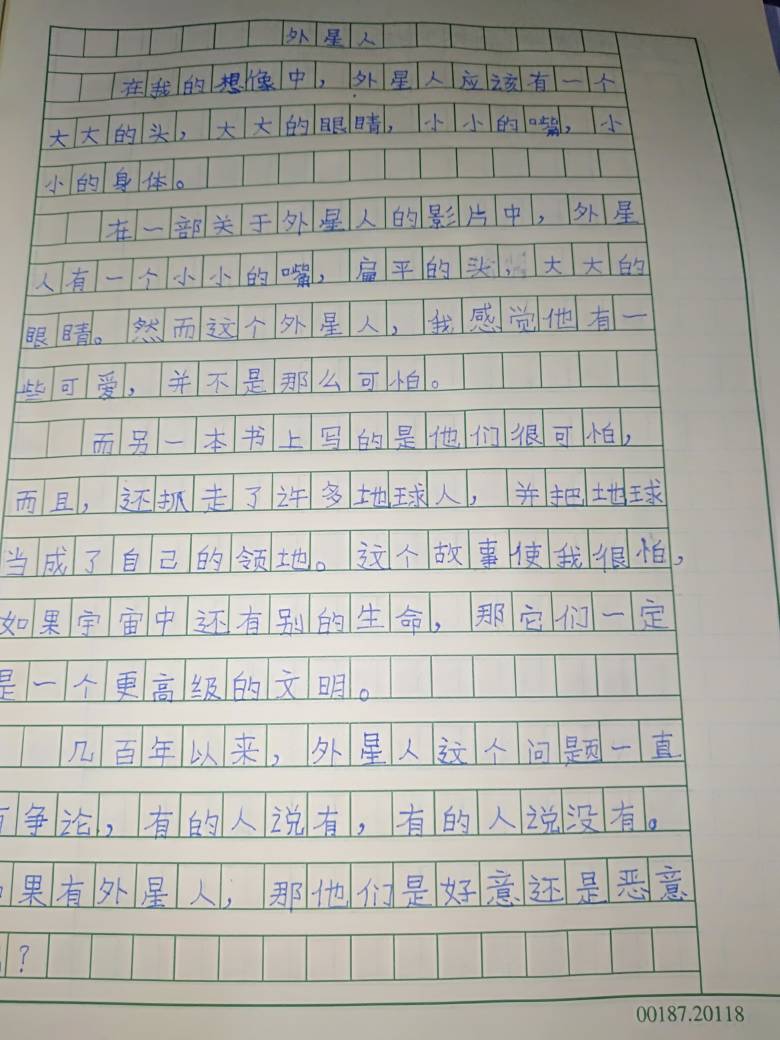 外星人
在我的想像中，外星人应该有一个
大大的头，大大的眼睛，小小的嘴，小
小的身体。
在一部关于外星人的影片中，外星
人有一个小小的嘴，扁平的头，大大的
眼睛。然而这个外星人，我感觉他有一
些可爱，并不是那么可怕。
而另一本书上写的是他们很可怕，
而且，还抓走了许多地球人，并把地球
当成了自己的领地。这个故事使我很怕，
如果宇宙中还有别的生命，那它们一定
是一个更高级的文明。
几百年以来，外星人这个问题一直
有争论，有的人说有，有的人说没有。
果有外星人，那他们是好意还是恶意
？
00187.20118